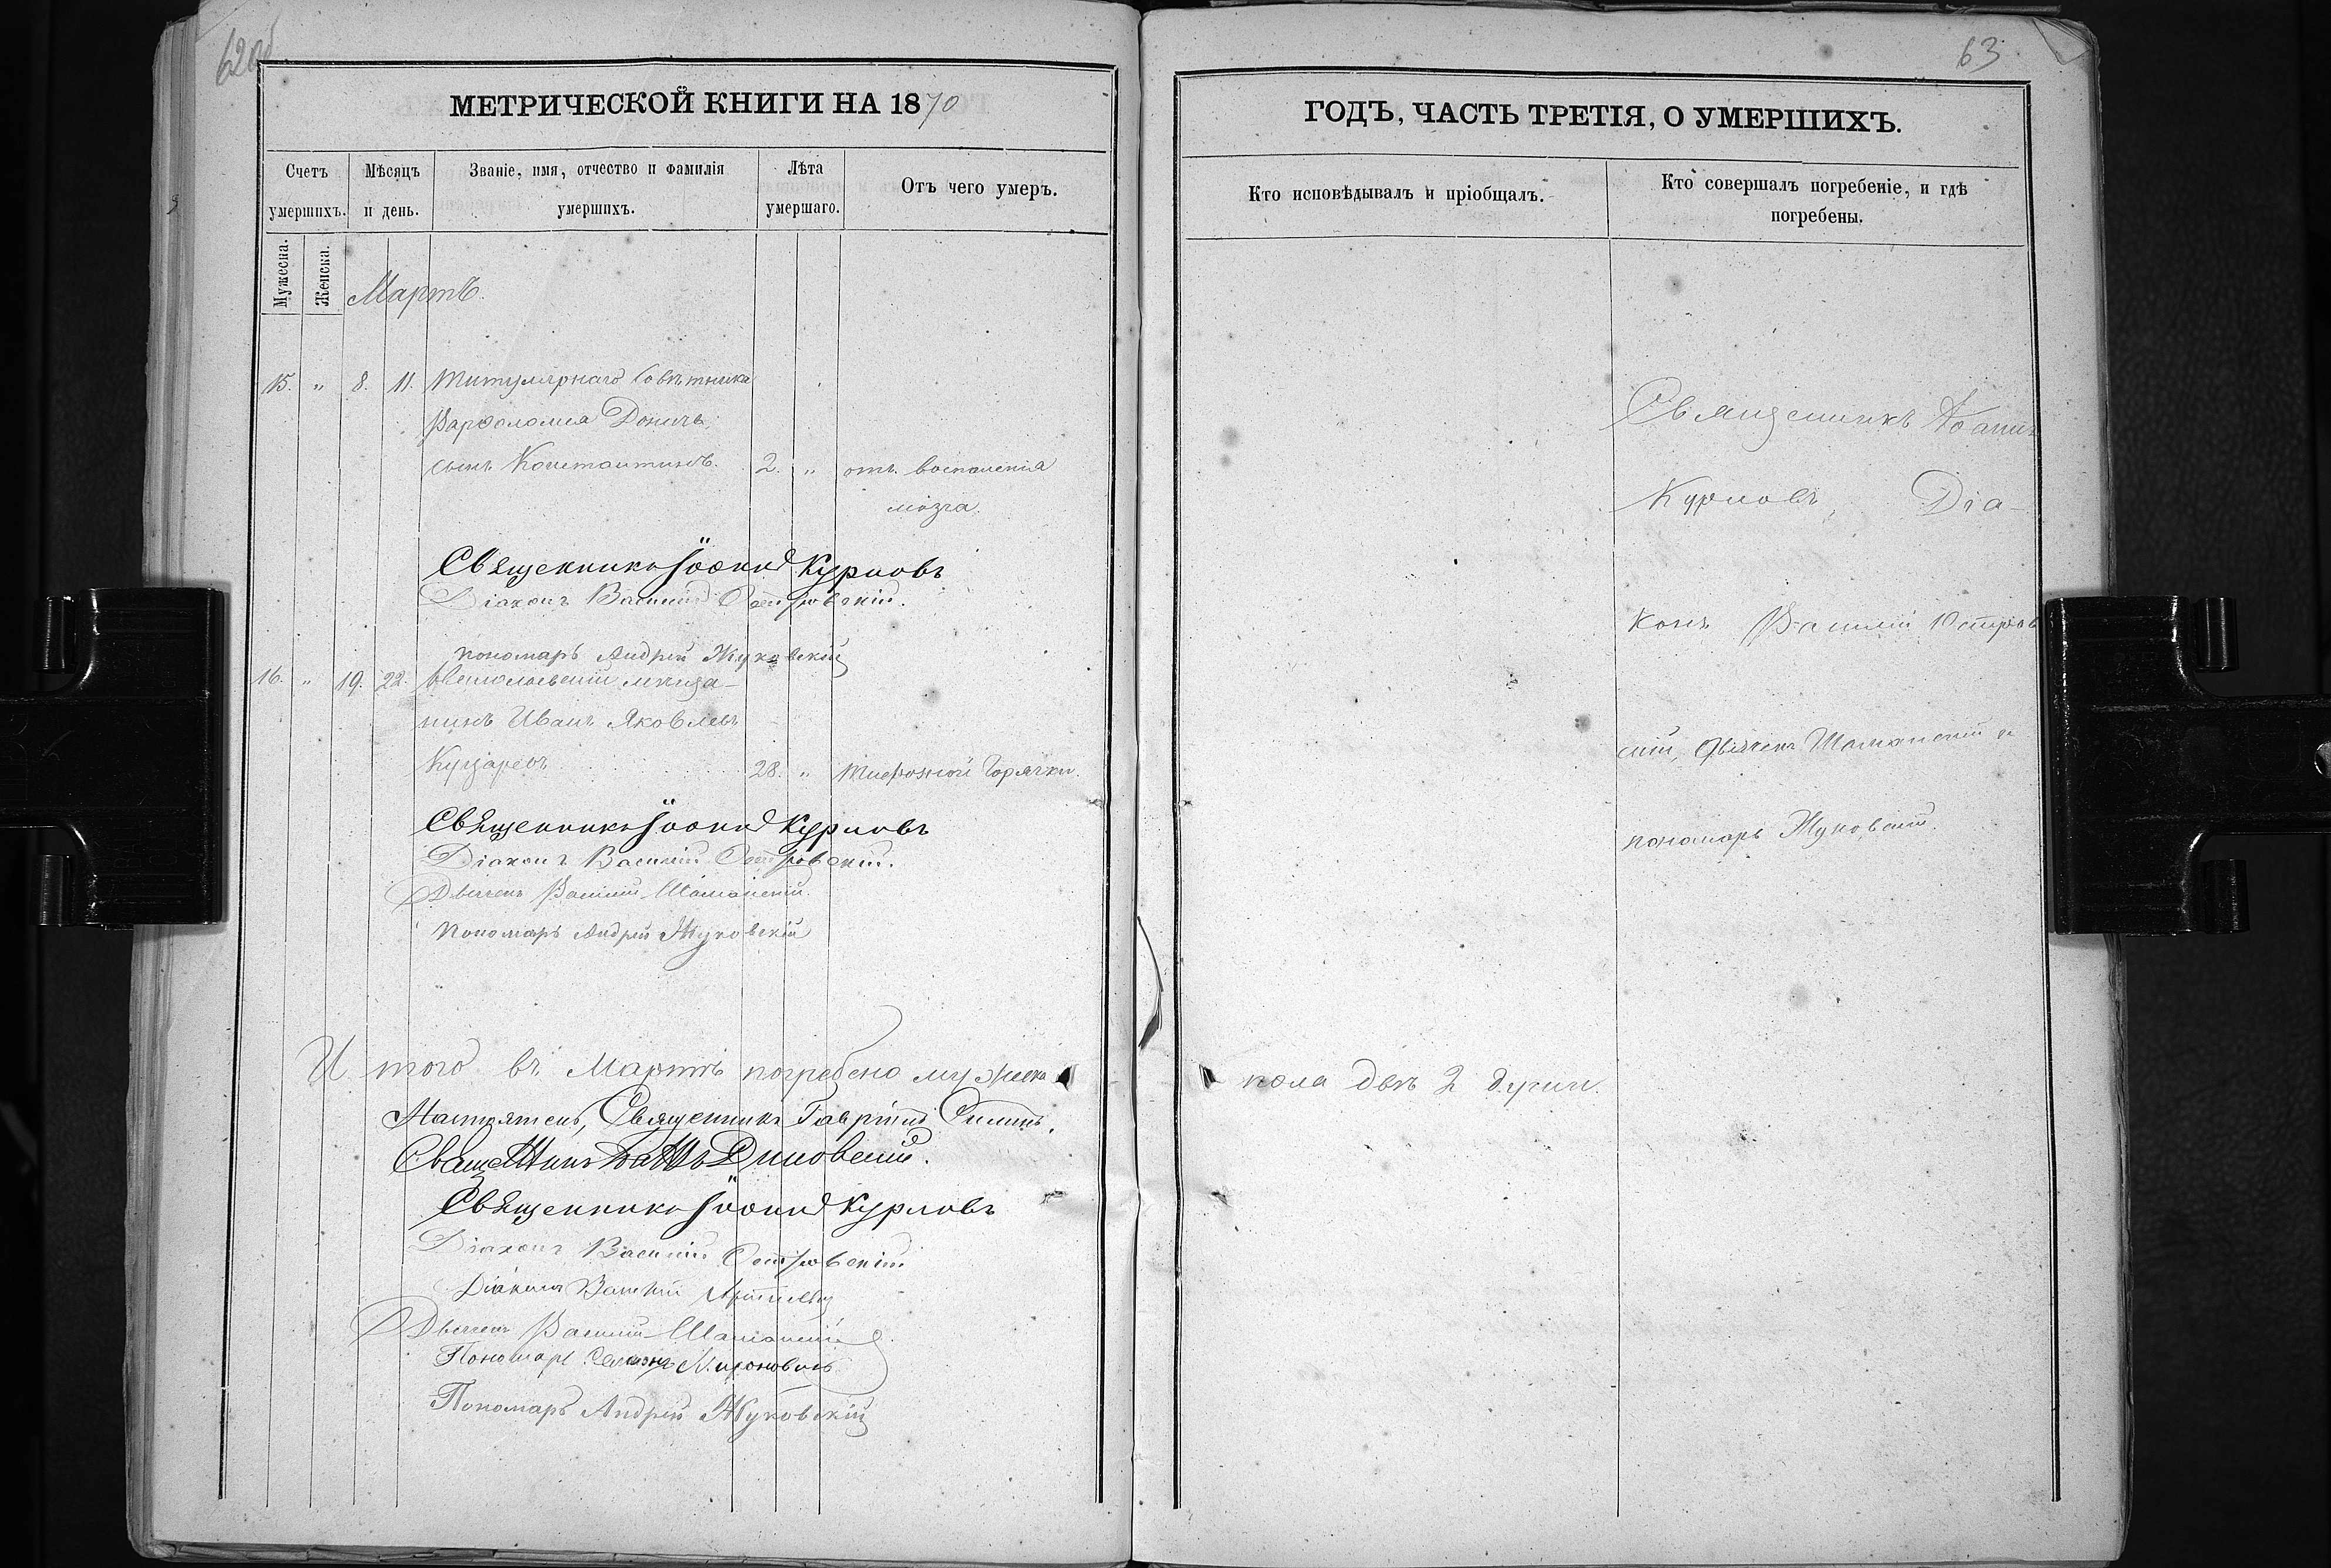 62об
МЕТРИЧЕСКОЙ КНИГИ НА 1870
Счетъ умершихъ.
Мѣсяцъ и день.
Званіе, имя, отчество и фамилія умершихъ.
Лѣта умершаго.
Отъ чего умеръ.
Мужеска.
Женска.
Мартъ.
15. „ 8. 11. Титулярнаго Совѣтника
Варѳоломея Донича
сынъ Константинъ. 2. „ отъ воспаленія
мозга.
Священникъ Іоаннъ Курловъ
Діаконъ Василій Островскій.
пономарь Андрей Жуковскій
16. „ 19. 22. мѣща-
нинъ Иванъ Яковлевъ
28. „ Тифозной Горячки.
Священникъ Іоаннъ Курловъ
Діаконъ Василій Островскій.
Дьячекъ Василій Шаманскій.
Пономарь Андрей Жуковскій
И того въ Мартѣ погребено мужеска
Настоятель, Священникъ Гавріилъ
Священникъ
Священникъ Іоаннъ Курловъ
Діаконъ Василій Островскій
Діаконъ Василій
Дьячекъ Василій Шаманскій
Пономарь
Пономарь Андрей Жуковскій
63
ГОДЪ, ЧАСТЬ ТРЕТІЯ, О УМЕРШИХЪ.
Кто исповѣдывалъ и пріобщалъ.
Кто совершалъ погребеніе, и гдѣ погребены.
Священникъ Іоаннъ
Курловъ, Діа-
конъ Василій Островс
кій, Дьячекъ Шаманскій и
пономарь Жуковскій.
пола двѣ 2 души.